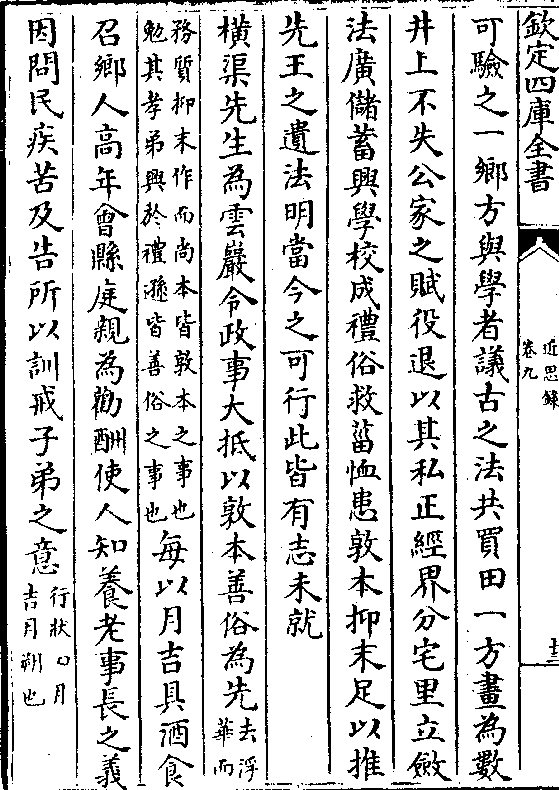 欽定四庫全書
近思錄
卷九
十三
可驗之一鄉方與學者議古之法共買田一方畫為數
井上不失公家之賦役退以其私正經界分宅里立斂
法廣儲蓄興學校成禮俗救菑恤患敦本抑末足以推
先王之遺法明當今之可行此皆有志未就
橫渠先生為雲巖令政事大抵以敦本善俗為先去浮華而
務質抑末作而尚本皆敦本之事也勉其孝弟興於禮遜皆善俗之事也每以月吉具酒食
召鄉人高年會縣庭親為勸酬使人知養老事長之義
因問民疾苦及告所以訓戒子弟之意行狀〇月吉月朔也